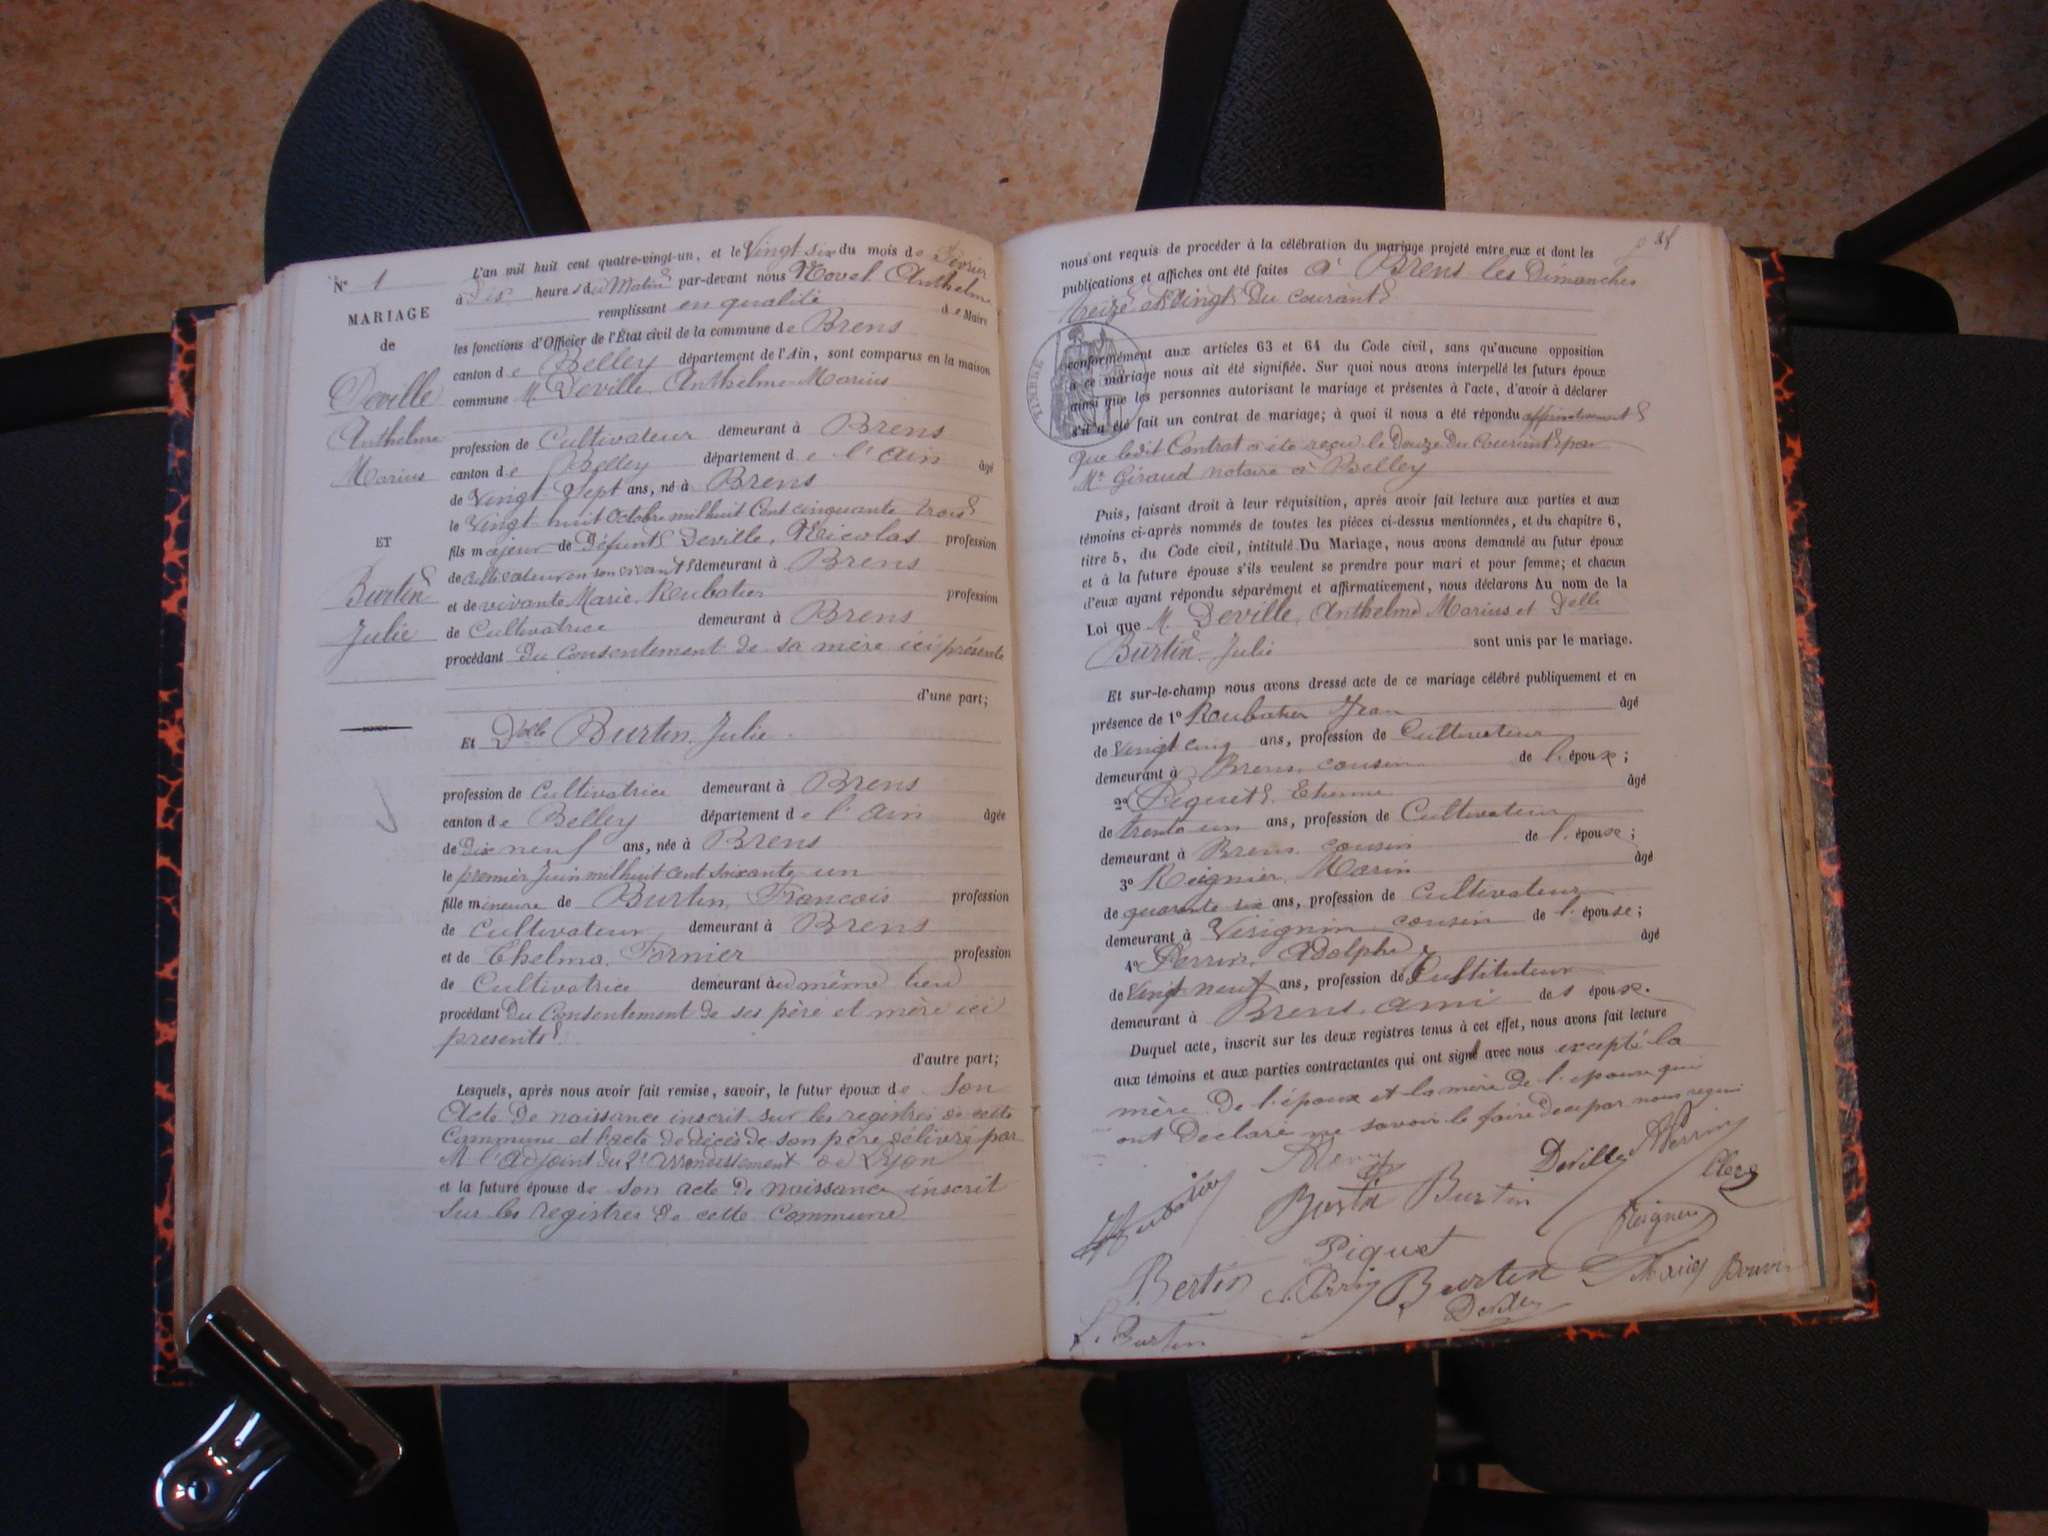 N° 1
MARIAGE
de
Deville
Anthelme
Marius
ET
Burtin
Julie
L'an mil huit cent quatre-vingt-un, et le Vingt-six du mois de Février
à Dix heures du Matin par-devant nous Novel Anthelme
remplissant en qualité de Maire
les fonctions d'Officier de l'État civil de la commune de Brens
canton de Belley département de l'Ain, sont comparus en la maison
commune M. Deville, Anthelme-Marius
profession de Cultivateur demeurant à Brens
canton de Belley département de l'Ain âgé
de Vingt-Sept ans, né à Brens
le Vingt-huit Octobre mil huit Cent cinquante trois
fils majeur de Défunt Deville, Nicolas profession
de Cultivateur en son vivant demeurant à Brens
et de vivante Marie Roubatier profession
de Cultivatrice demeurant à Brens
procédant du Consentement de sa mère ici présente
d'une part;
Et Delle Burtin, Julie
profession de Cultivatrice demeurant à Brens
canton de Belley département de l'Ain âgée
de Dix neuf ans, née à Brens
le premier Juin mil huit cent soixante un
fille mineure de Burtin, François profession
de Cultivateur demeurant à Brens
et de Thelma Fornier profession
de Cultivatrice demeurant au même lieu
procédant Du Consentement de ses père et mère ici
présents
d'autre part;
Lesquels, après nous avoir fait remise, savoir, le futur époux de Son
Acte De naissance inscrit sur les registres de cette
Commune et l'acte de décès de son père délivré par
M l'adjoint du 2e arrondissement de Lyon
et la future épouse de son acte de naissance inscrit
Sur les registres de cette Commune
28
nous ont requis de procéder à la célébration du mariage projeté entre eux et dont les
publications et affiches ont été faites à Brens les Dimanches
treize et Vingt Du courant
TIMBRE
conformément aux articles 63 et 64 du Code civil, sans qu'aucune opposition
à ce mariage nous ait été signifiée. Sur quoi nous avons interpellé les futurs époux
ainsi que les personnes autorisant le mariage et présentes à l'acte, d'avoir à déclarer
s'il a été fait un contrat de mariage; à quoi il nous a été répondu affirmativement
Que ledit Contrat a été reçu le Douze Du Courant par
Me Giraud notaire à Belley
Puis, faisant droit à leur réquisition, après avoir fait lecture aux parties et aux
témoins ci-après nommés de toutes les pièces ci-dessus mentionnées, et du chapitre 6,
titre 5, du Code civil, intitulé Du Mariage, nous avons demandé au futur époux
et à la future épouse s'ils veulent se prendre pour mari et pour femme; et chacun
d'eux ayant répondu séparément et affirmativement, nous déclarons Au nom de la
Loi que M. Deville, Anthelme Marius et Delle
Burtin Julie sont unis par le mariage.
Et sur-le-champ nous avons dressé acte de ce mariage célébré publiquement et en
présence de 1° Roubatier Jean âgé
de Vingt cinq ans, profession de Cultivateur
demeurant à Brens, cousin de l'époux;
2° Piquet, Etienne âgé
de trente un ans, profession de Cultivateur
demeurant à Brens cousin de l'épouse;
3° Reignier, Marin âgé
de quarante six ans, profession de Cultivateur
demeurant à Virignin cousin de l'épouse;
4° Perrin, Adolphe âgé
de Vingt neuf ans, profession de Instituteur
demeurant à Brens ami des époux.
Duquel acte, inscrit sur les deux registres tenus à cet effet, nous avons fait lecture
aux témoins et aux parties contractantes qui ont signé avec nous excepté la
mère De l'époux et la mère De l'épouse qui
ont Déclaré ne savoir le faire de ce par nous requis
Deville Perrin
Burtin Burtin Clerc
Reignier
Piquet
Bertin Perrin Burtin
Deville
Burtin